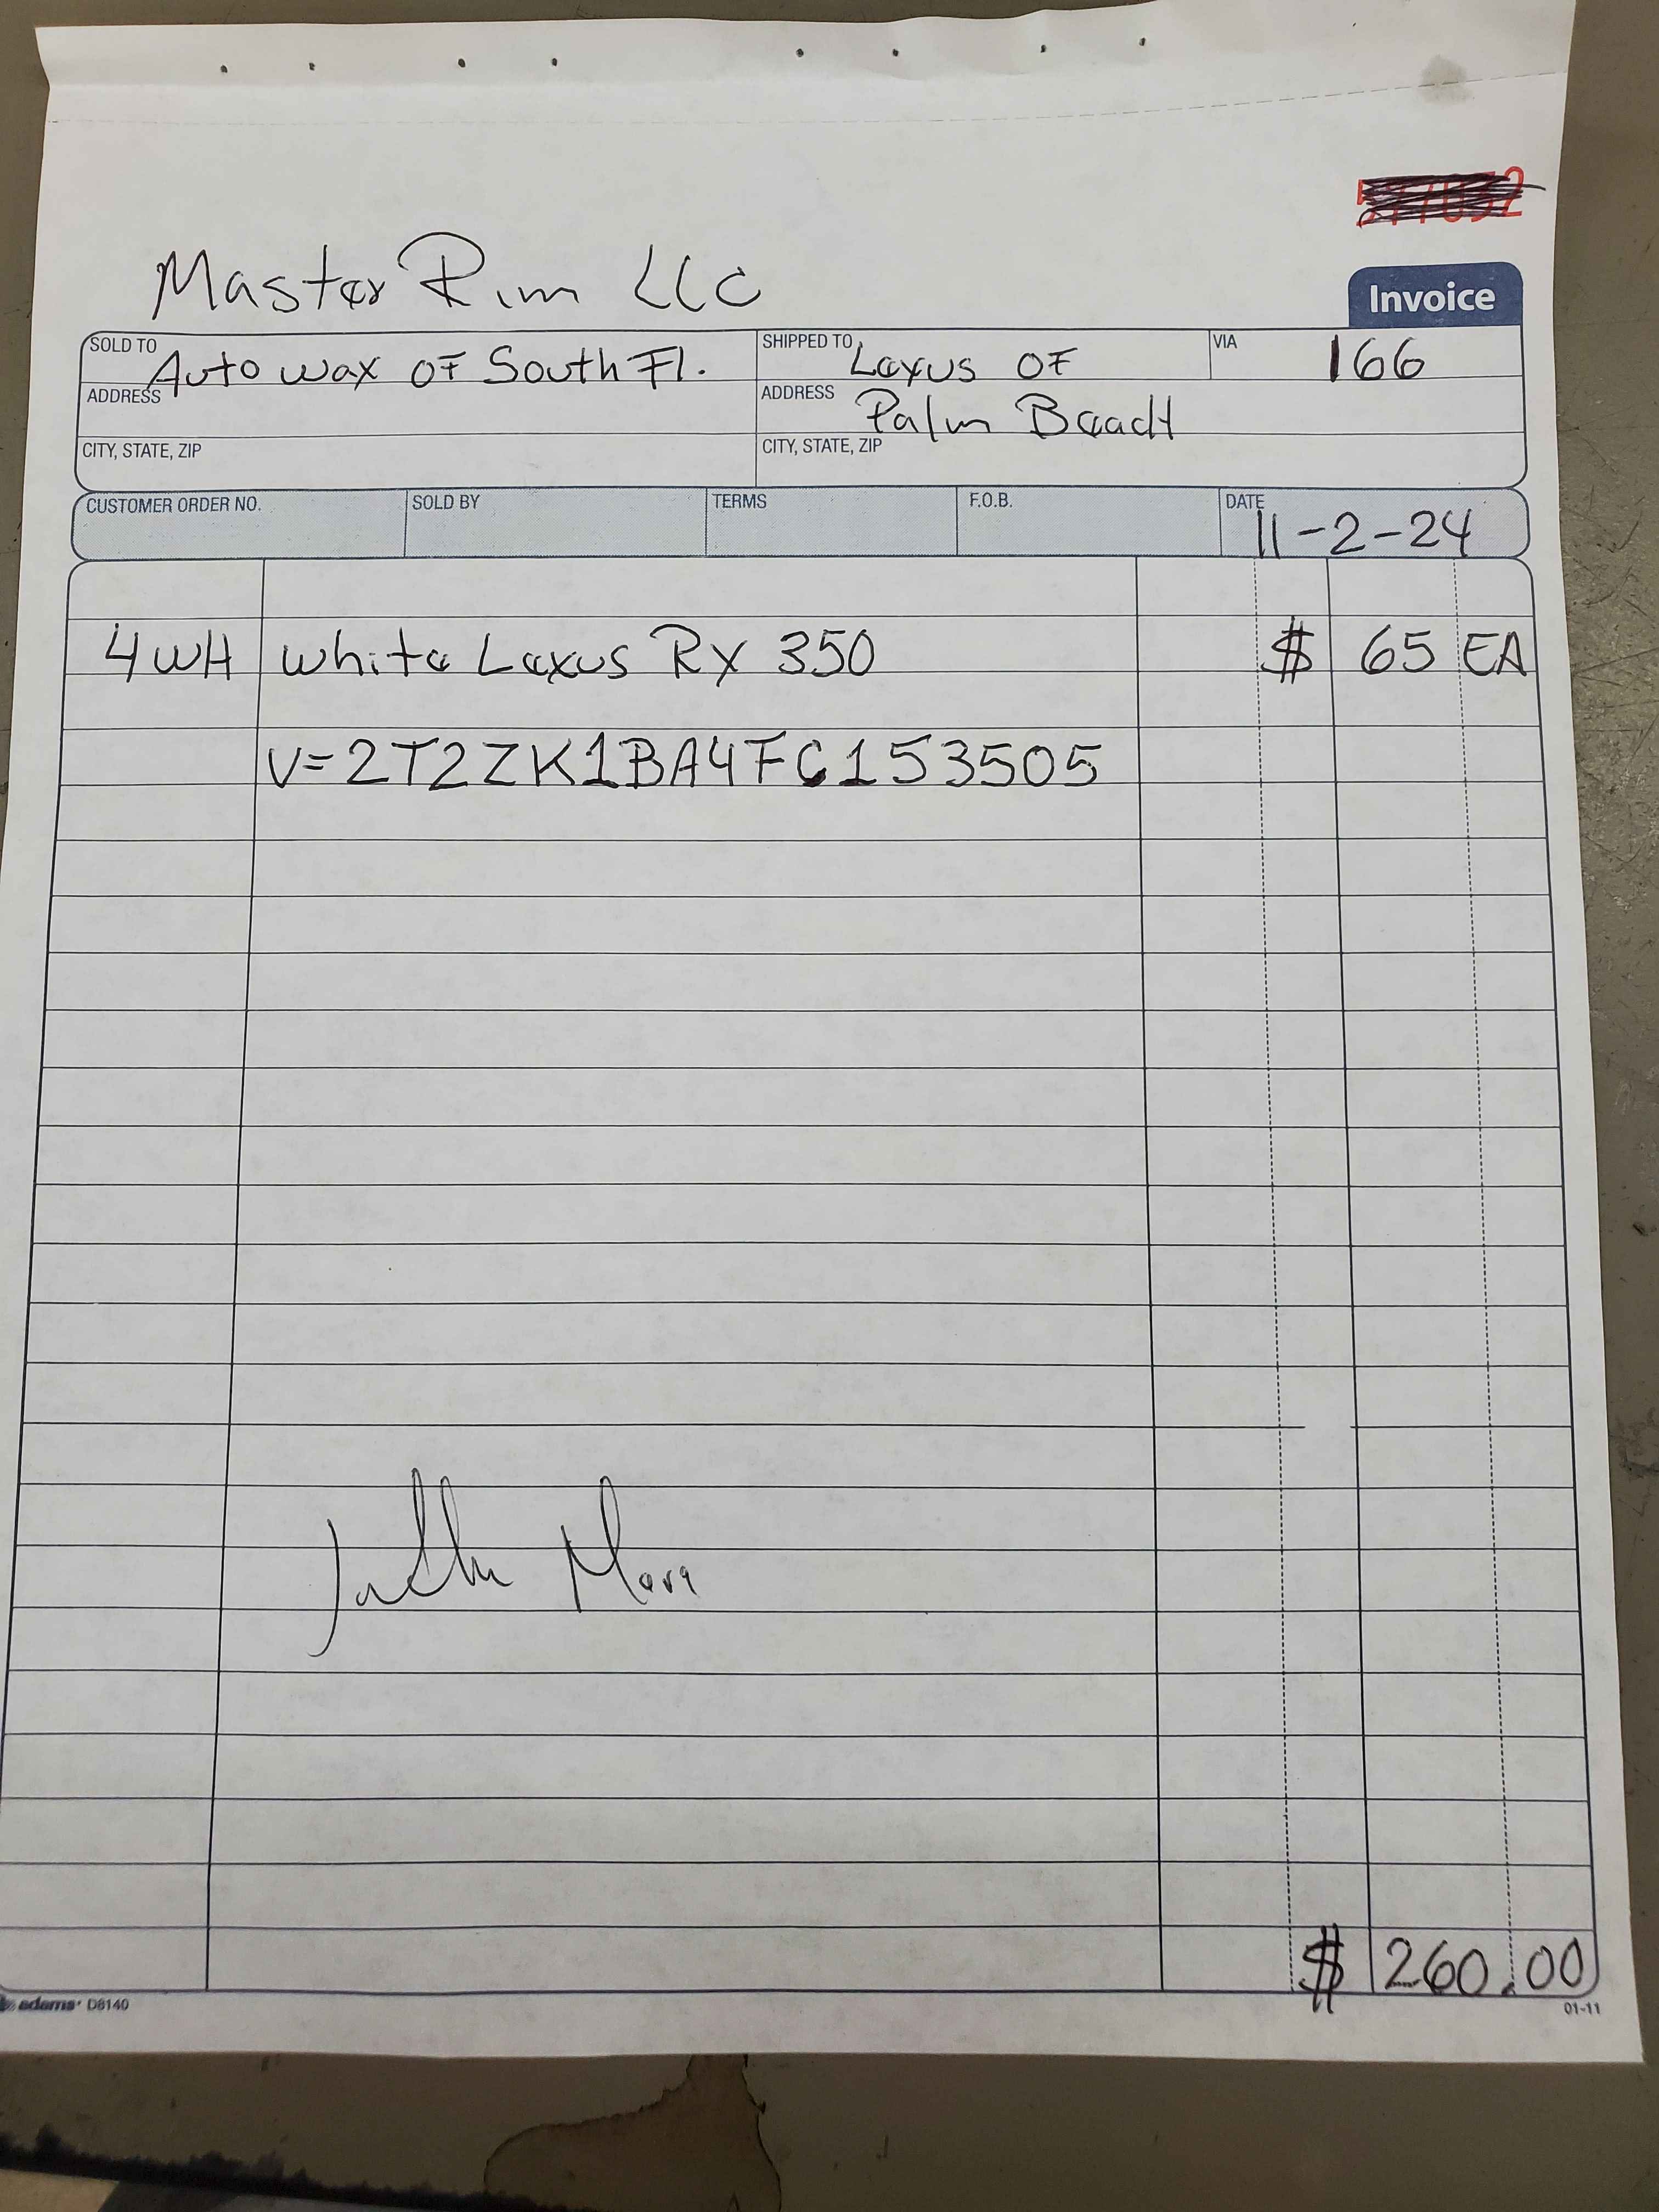 Master Rim LLC
Invoice
SOLD TO Auto wax OF South Fl.
SHIPPED TO Lexus OF
VIA 166
ADDRESS
ADDRESS Palm Beach
CITY, STATE, ZIP
CITY, STATE, ZIP
CUSTOMER ORDER NO. SOLD BY TERMS F.O.B. DATE 11-2-24
4 WH white Lexus RX 350 $ 65 EA
V=2T2ZK1BA4FC153505
$ 260.00
adams D8140
01-11